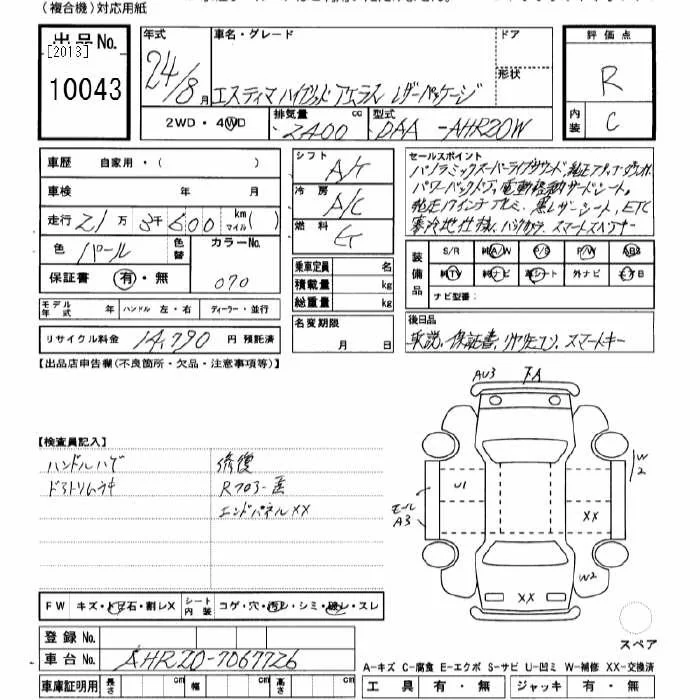 (複合機)対応用紙
出品No.
[2013]
10043
年式
24/8月
車名・グレード
エスティマ ハイブリッド アエラス レザーパッケージ
ドア
形状
2WD・4WD
排気量
2400 cc
型式
DAA -AHR20W
評価点
R
内装
C
車歴 自家用・( )
車検 年 月
走行 21万 3千600 km マイル( )
色 パール
色替
カラーNo.
070
保証書 有・無
モデル年式 年
ハンドル 左・右
ディーラー・並行
リサイクル料金 14,790 円 預託済
シフト
A/T
冷房
A/C
燃料
乗車定員 名
積載量 kg
総重量 kg
名変期限
月 日
セールスポイント
パノラミックスーパーライブサウンド,
パワーバックドア,電動
純正アルミ,黒レザーシート,ETC
寒冷地仕様,バックカメラ,スマート
装備品
S/R
純A/W
P/S
P/W
ABS
純TV
純ナビ
革シート
外ナビ
ナビ型番:
後日品
取説,保証書,リヤリモコン,スマートキー
【出品店申告欄(不良箇所・欠品・注意事項等)】
【検査員記入】
ハンドルハゲ
ドアトリムキ
修復
エンドパネルXX
AU3
下A
W2
U1
モール
A3
XX
W2
XX
スペア
FW キズ・トビ石・割レX
シート内装 コゲ・穴・汚レ・シミ・破レ・スレ
登録No.
車台No. AHR20-7067726
車庫証明用 長さ cm 幅 cm 高さ cm
A-キズ C-腐食 E-エクボ S-サビ U-凹ミ W-補修 XX-交換済
工具 有・無 ジャッキ 有・無